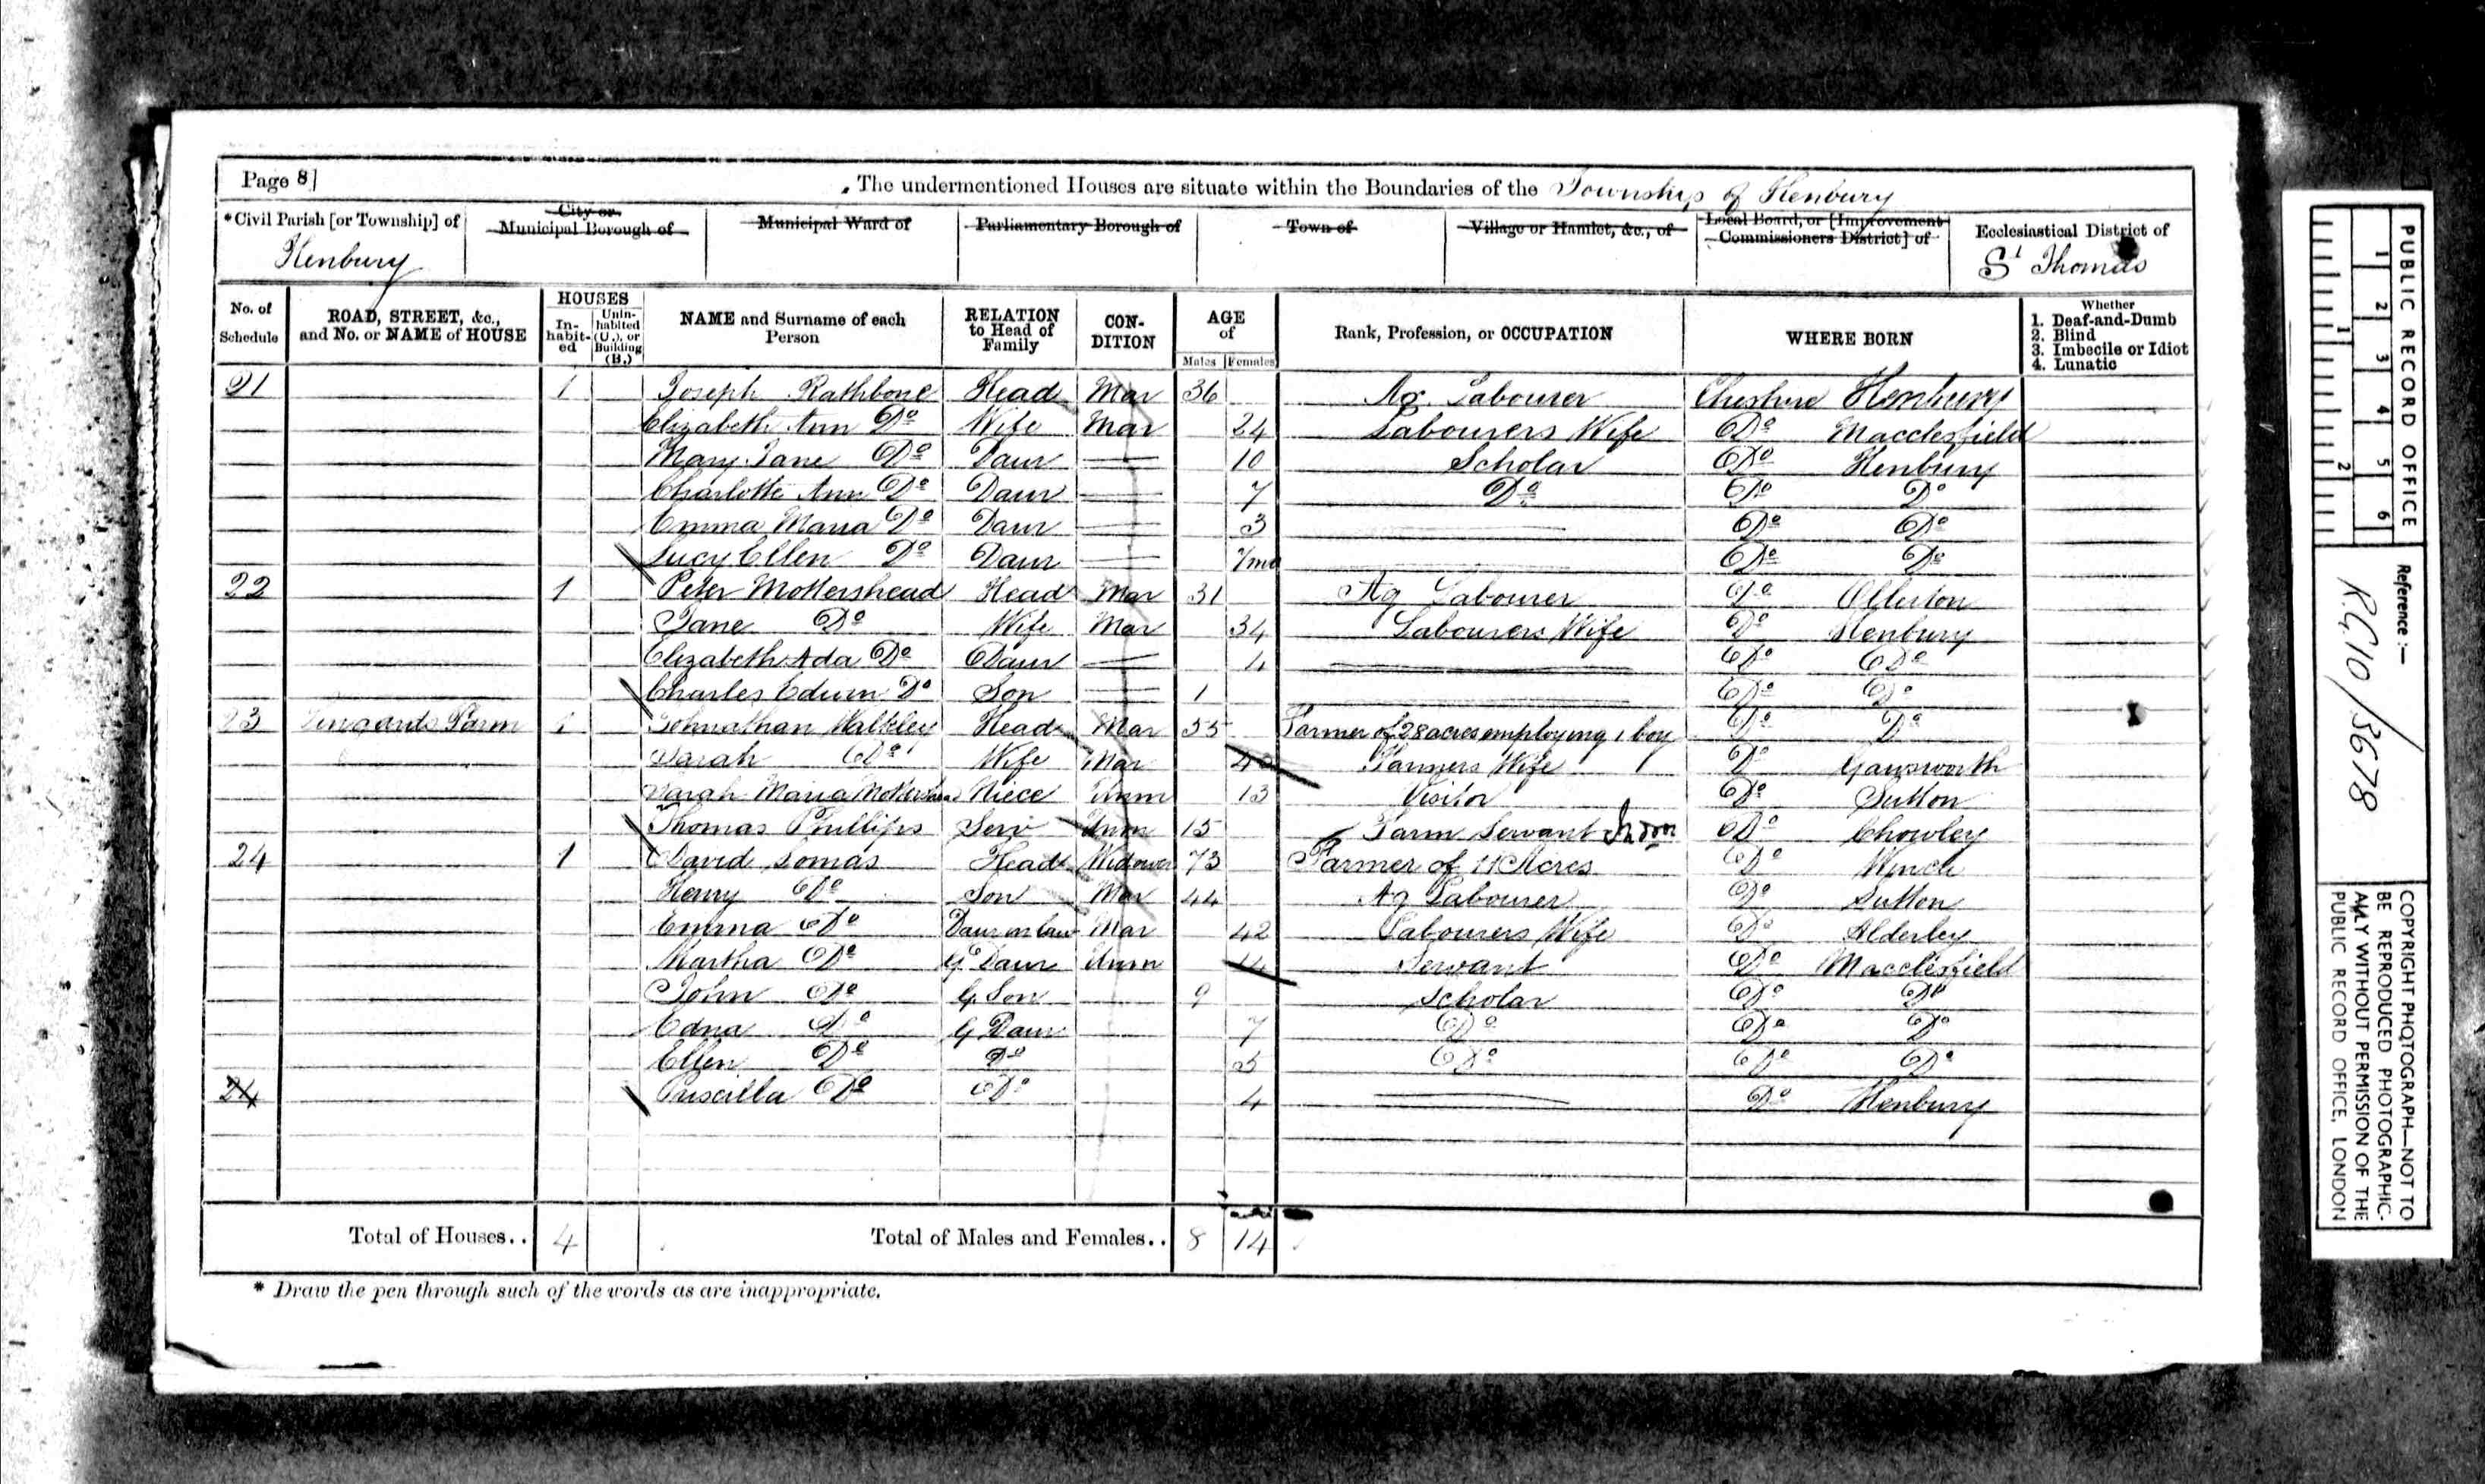 Page 8]
The undermentioned Houses are situate within the Boundaries of the Township of Henbury
*Civil Parish [or Township] of
Henbury
City or Municipal Borough of
Municipal Ward of
Parliamentary Borough of
Town of
Village or Hamlet, &c., of
Local Board, or [Improvement Commissioners District] of
Ecclesiastical District of
St Thomas
No. of Schedule
ROAD, STREET, &c., and No. or NAME of HOUSE
HOUSES
In-habit-ed
Unin-habited (U.), or Building (B.)
NAME and Surname of each Person
RELATION to Head of Family
CON-DITION
AGE of
Males Females
Rank, Profession, or OCCUPATION
WHERE BORN
Whether
1. Deaf-and-Dumb
2. Blind
3. Imbecile or Idiot
4. Lunatic
21 1 Joseph Rathbone Head Mar 36 Ag. Labourer Cheshire Henbury
Elizabeth Ann Do Wife Mar 24 Labourers Wife Do Macclesfield
Mary Jane Do Daur — 10 Scholar Do Henbury
Charlotte Ann Do Daur — 7 Do Do Do
Emma Maria Do Daur — 3 Do Do
Lucy Ellen Do Daur — 7/mo Do Do
22 1 Peter Mottershead Head Mar 31 Ag Labourer Do Ollerton
Jane Do Wife Mar 34 Labourers Wife Do Henbury
Elizabeth Ada Do Daur — 4 Do Do
Charles Edwin Do Son — 1 Do Do
23 Farm 1 Johnathan Head Mar 55 Farmer of 28 acres employing 1 boy Do Do
Sarah Do Wife Mar Farmers Wife Do Gawsworth
Sarah Maria Niece Unm 13 Visitor Do Sutton
Thomas Phillips Serv Unm 15 Farm Servant Indoor Do Chowley
24 1 David Lomas Head Widower 73 Farmer of 11 Acres Do Wincle
Henry Do Son Mar 44 Ag Labourer Do Sutton
Emma Do Daur in law Mar 42 Labourers Wife Do Alderley
Martha Do G Daur Unm Servant Do Macclesfield
John Do G Son 9 Scholar Do Do
Edna Do G Daur 7 Do Do Do
Ellen Do Do 5 Do Do Do
24 Priscilla Do Do 4 Do Henbury
Total of Houses.. 4 Total of Males and Females.. 8 14
* Draw the pen through such of the words as are inappropriate.
PUBLIC RECORD OFFICE
1 2 3 4 5 6
1 2
Reference :—
R.G. 10/3678
COPYRIGHT PHOTOGRAPH—NOT TO
BE REPRODUCED PHOTOGRAPHIC-
ALLY WITHOUT PERMISSION OF THE
PUBLIC RECORD OFFICE, LONDON